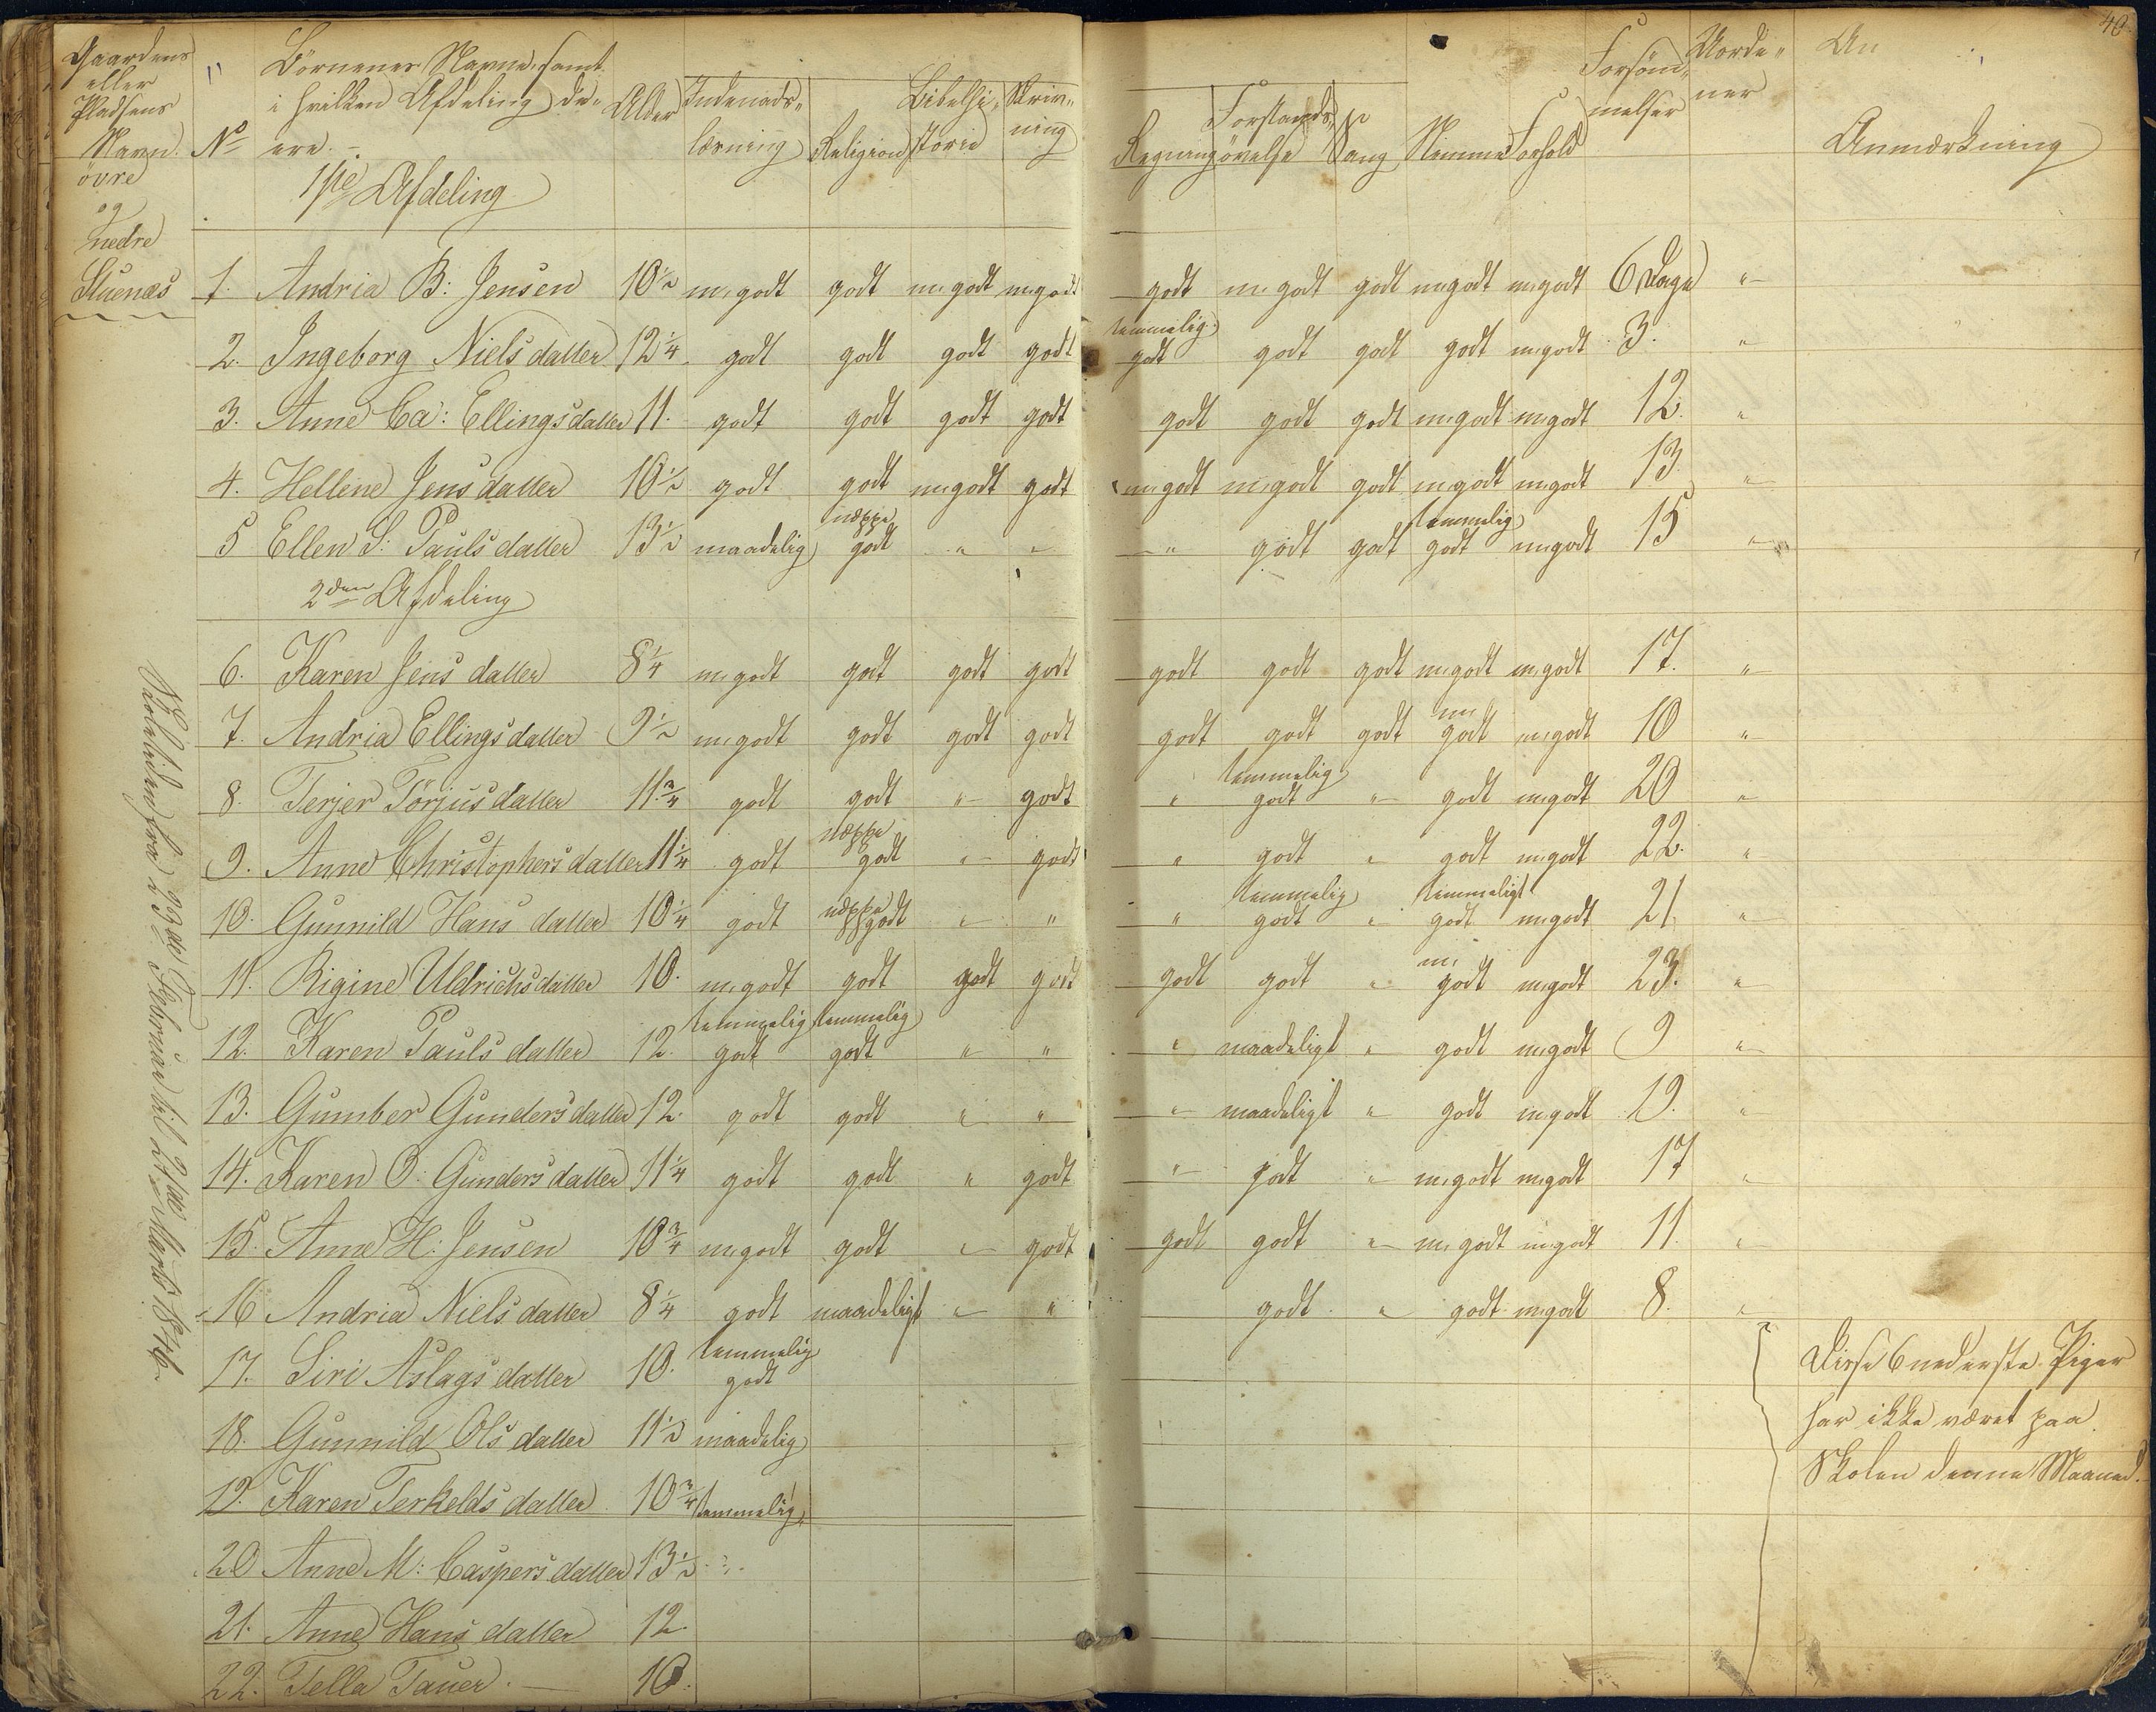 40.
Gaardens eller Pladsens Navn. No Börnenes Navne, samt i hvilken Afdeling de ere. Alder Indenads- læsning Religion Bibelhi- storie Skriv- ning Regning Forstands- øvelse Sang Nemme Forhold Forsöm- melser Uorde- ner Anmærkning
övre og nedre Stuenæs
1ste Afdeling
1. Andria B: Jensen 10½ m. godt godt m. godt m. godt godt m. godt godt m. godt m. godt 6 Dage "
2. Ingeborg Nielsdatter 12¼ godt godt godt godt temmelig godt godt godt godt m. godt 3. "
3. Anne Ca: Ellingsdatter 11. godt godt godt godt godt godt godt m. godt m. godt 12. "
4. Hellene Jensdatter 10½ godt godt m. godt godt m. godt m. godt godt m. godt m. godt 13 "
5 Ellen S: Paulsdatter 13½ maadelig neppe godt " " " godt godt temmelig godt m. godt 15 "
2den Afdeling
6. Karen Jensdatter 8¼ m. godt godt godt godt godt godt godt m. godt m. godt 17. "
7. Andria Ellingsdatter 9½ m. godt godt godt godt godt godt godt m. godt m. godt 10 "
8. Terjer Törjusdatter 11¾ godt godt " godt " temmelig godt " godt m. godt 20 "
9. Anne Christophersdatter 11¼ godt neppe godt " godt " godt " godt m. godt 22. "
10. Gunnild Hansdatter 10¼ godt neppe godt " " " temmelig godt " temmeligt godt m. godt 21. "
11. Rigine Uldrichsdatter 10. m. godt godt godt godt godt godt " m. godt m. godt 23. "
12. Karen Paulsdatter 12. temmelig godt temmelig godt " " " maadeligt " godt m. godt 9 "
13. Gumber Gundersdatter 12. godt godt " " " maadeligt " godt m. godt 19. "
14. Karen O: Gundersdatter 11¼ godt godt " godt " godt " m. godt m. godt 17 "
15. Anne H: Jensen 10¾ m. godt godt " godt godt godt " m. godt m. godt 11. "
16 Andria Nielsdatter 8¼ godt maadeligt " " godt " godt m. godt 8. "
17. Siri Aslagsdatter 10. temmelig godt
18. Gunnild Olsdatter 11½ maadelig
19. Karen Terkeldsdatter 10¾ temmelig
20 Anne M: Caspersdatter 13½ "
21. Anne Hansdatter 12.
22. Tella Tauer. 10.
Disse 6 nederste Piger
har ikke været paa
Skolen denne Maaned.
Skoletiden fra 23de Februar til 21de Marts 1846.